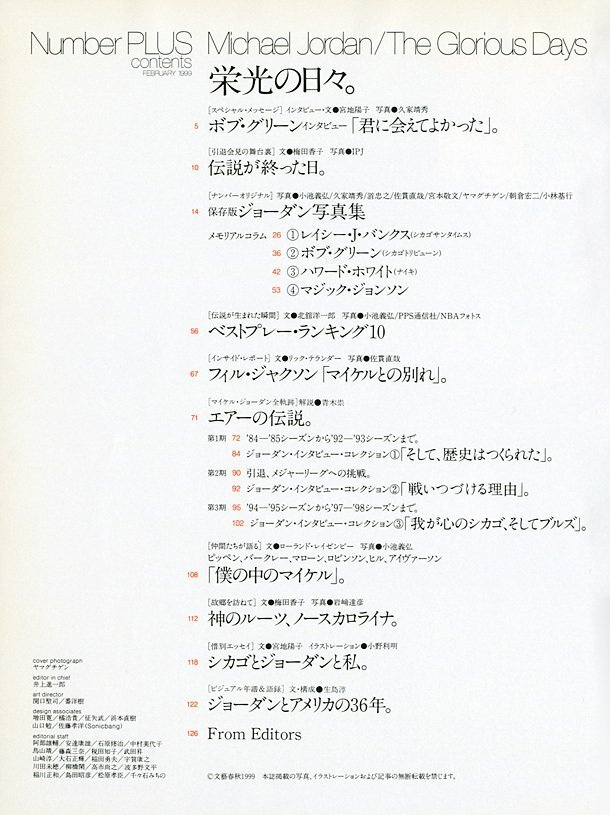 Number PLUS Michael Jordan/The Glorious Days
contents
FEBRUARY 1999
栄光の日々。
[スペシャル・メッセージ] インタビュー・文●宮地陽子 写真●久家靖秀
5 ボブ・グリーンインタビュー「君に会えてよかった」。
[引退会見の舞台裏] 文●梅田香子 写真●IPJ
10 伝説が終った日。
[ナンバーオリジナル] 写真●小池義弘/久家靖秀/沼忠之/佐貫直哉/宮本敬文/ヤマグチゲン/朝倉宏二/小林基行
14 保存版ジョーダン写真集
メモリアルコラム 26 ①レイシー・J・バンクス(シカゴサンタイムス)
36 ②ボブ・グリーン(シカゴトリビューン)
42 ③ハワード・ホワイト(ナイキ)
53 ④マジック・ジョンソン
[伝説が生まれた瞬間] 文●北舘洋一郎 写真●小池義弘/PPS通信社/NBAフォトス
56 ベストプレー・ランキング10
[インサイド・レポート] 文●リック・テランダー 写真●佐貫直哉
67 フィル・ジャクソン「マイケルとの別れ」。
[マイケル・ジョーダン全軌跡] 解説●青木崇
71 エアーの伝説。
第1期 72 '84―'85シーズンから'92―'93シーズンまで。
84 ジョーダン・インタビュー・コレクション①「そして、歴史はつくられた」。
第2期 90 引退、メジャーリーグへの挑戦。
92 ジョーダン・インタビュー・コレクション②「戦いつづける理由」。
第3期 95 '94―'95シーズンから'97―'98シーズンまで。
102 ジョーダン・インタビュー・コレクション③「我が心のシカゴ、そしてブルズ」。
[仲間たちが語る] 文●ローランド・レイゼンビー 写真●小池義弘
ピッペン、バークレー、マローン、ロビンソン、ヒル、アイヴァーソン
108 「僕の中のマイケル」。
[故郷を訪ねて] 文●梅田香子 写真●岩崎達彦
112 神のルーツ、ノースカロライナ。
[惜別エッセイ] 文●宮地陽子 イラストレーション●小野利明
118 シカゴとジョーダンと私。
[ビジュアル年譜&語録] 文・構成●生島淳
122 ジョーダンとアメリカの36年。
126 From Editors
cover photograph
ヤマグチゲン
editor in chief
井上進一郎
art director
関口聖司/番洋樹
design associates
増田寛/橘浩貴/征矢武/浜本直樹
山口勉/佐藤孝洋(Sonicbang)
editorial staff
阿部雄輔/安達康雄/石原修治/中村美代子
鳥山靖/藤森三奈/税田知子/武田昇
山崎淳/大石正輝/稲田勇夫/宇賀康之
川田未穂/柳橋閑/高木尚之/波多野文平
稲川正和/島田昭彦/松原孝臣/千々石みちの
©文藝春秋1999 本誌掲載の写真、イラストレーションおよび記事の無断転載を禁じます。